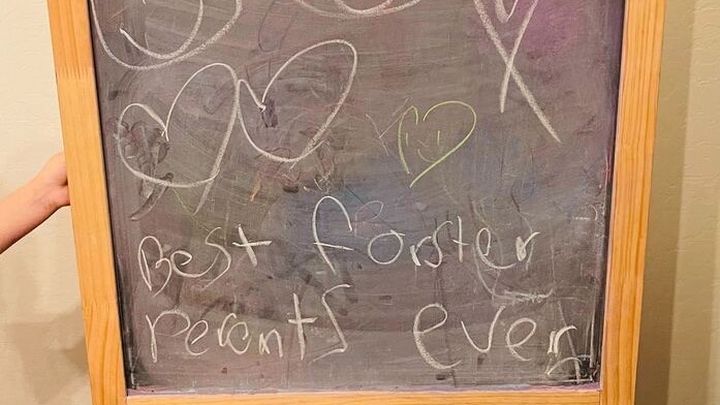 Best forster
perents ever